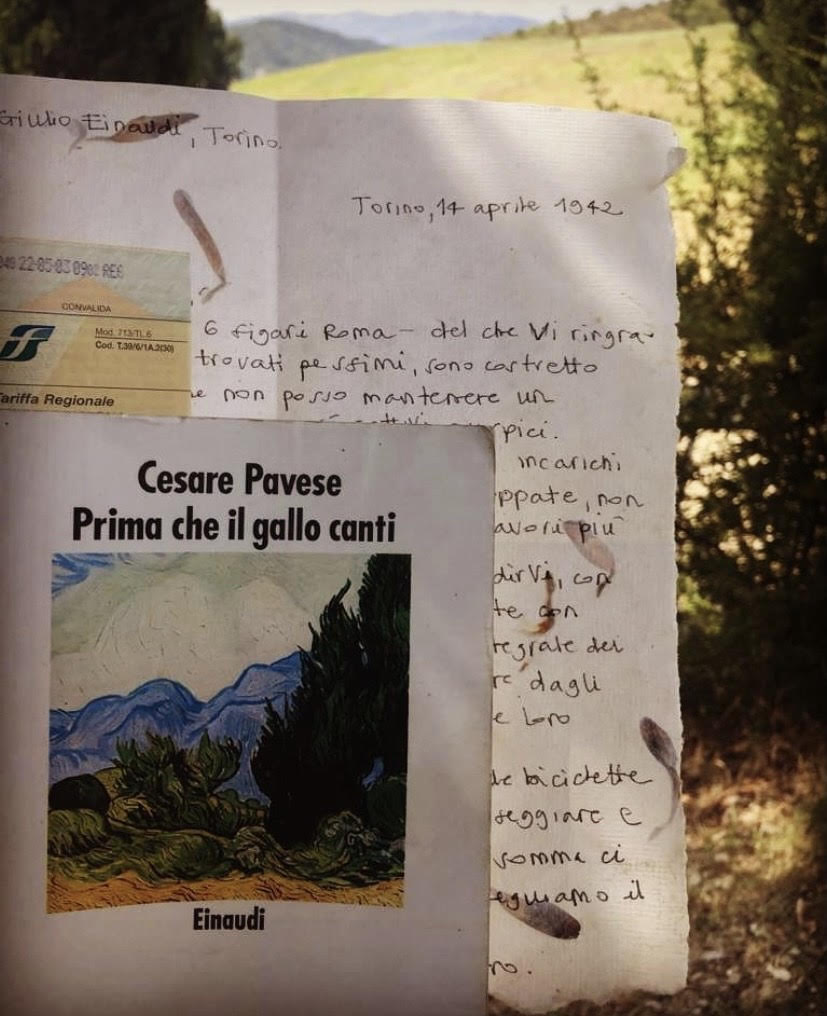 Giulio Einaudi, Torino.
Torino, 14 aprile 1942
22-05-03 0902 REG
CONVALIDA
Mod. 713/TL.6
Cod. T.39/6/1A.2(30)
Tariffa Regionale
6 sigari Roma – del che Vi ringra-
trovati pessimi, sono costretto
non posso mantenere un
spici.
incarichi
ppate, non
avori più
dirVi, con
te con
tegrate dei
re dagli
e loro
biciclette
seggiare e
somma ci
eguiamo il
ro.
Cesare Pavese
Prima che il gallo canti
Einaudi